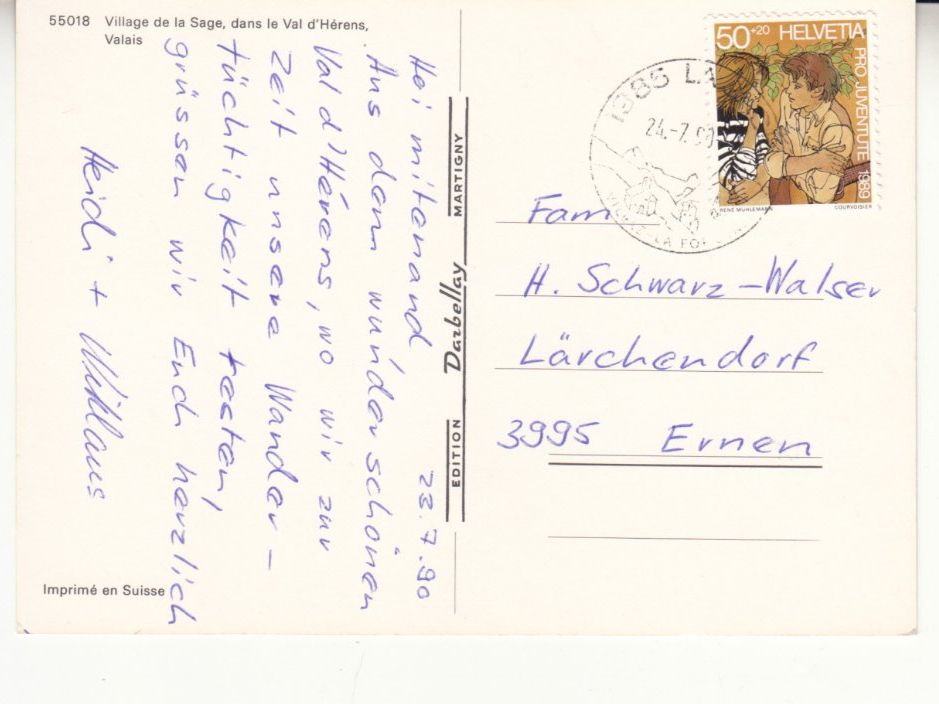 55018 Village de la Sage, dans le Val d'Hérens,
Valais
Hoi mitenand 23.7.90
Aus dem wunderschönen
Val d'Hérens, wo wir zur
Zeit unsere Wander-
tüchtigkeit testen,
grüssen wir Euch herzlich
Heidi + Niklaus
Imprimé en Suisse
EDITION Darbellay MARTIGNY
1985 LA
24.-7.90
LA FOR
50+20 HELVETIA
PRO JUVENTUTE 1989
RENE MÜHLEMANN COURVOISIER
Fam
H. Schwarz-Walser
Lärchendorf
3995 Ernen